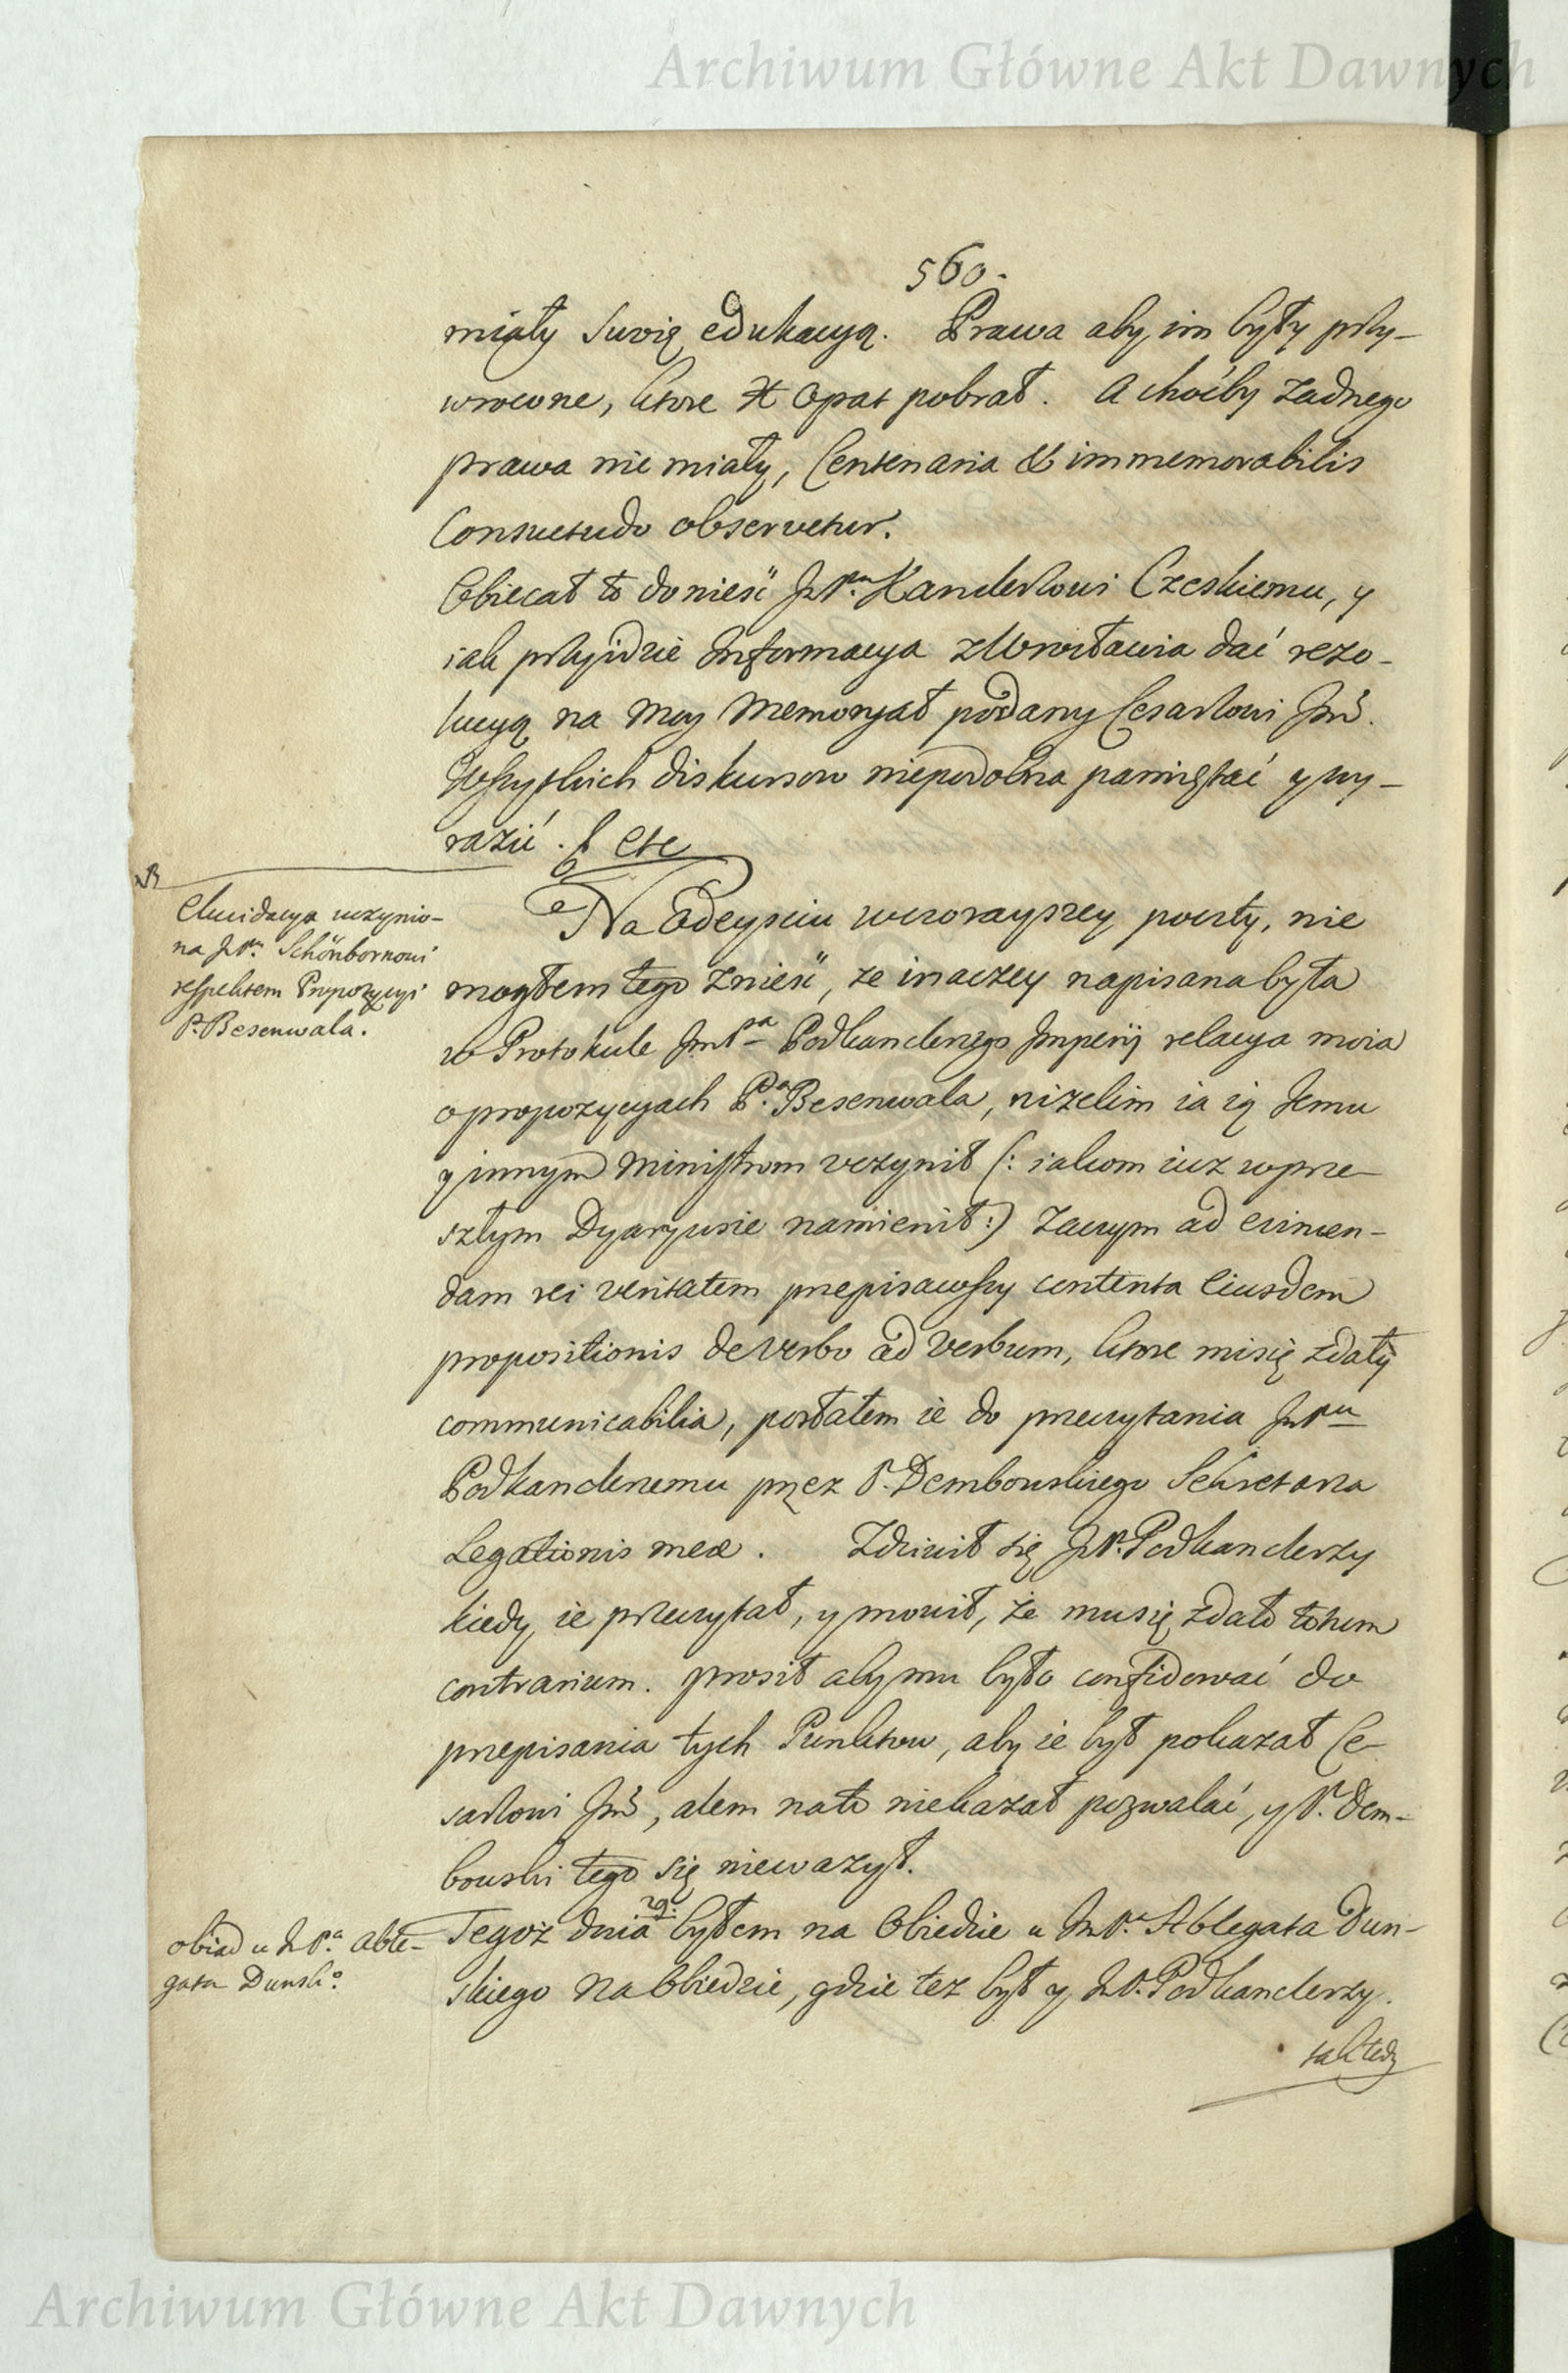 Archiwum Główne Akt Dawnych
560.
miały swoię edukacyą. Prawa aby im były przy-
wrocone, ktore X Opat pobrał. A choćby zadnego
prawa nie miały, Centenaria & immemorabilis
Consuetudo observetur.
Obiecał to donieść JmP.nu Kanclerzowi Czeskiemu, y
iak przyidzie Informacya z Wrocławia dać rezo-
lucyą na moy Memoryał podany Cesarzowi Jmć.
Wszystkich diskursow niepodobna pamiętać y wy-
razić. etc
Elucidacya uczynio-
na JmP.nu Schönbornowi
respektem Propozycyi
P. Besenwala.
Na Odeysciu wczorayszey poczty, nie
mogłem tego znieść, ze inaczey napisana była
w Protokule JmP.a Podkanclerzego Imperij relacya moia
o propozycyach P.a Besenwala, niżelim ia ią Jemu
y innym Ministrom uczynił (: iakom iuz w prze-
szłym Dyaryusie namienił :) Zaczym ad eximen-
dam rei veritatem przepisawszy contenta Eiusdem
propositionis de verbo ad verbum, ktore mi się zdały
communicabilia, posłałem ie do przeczytania JmP.nu
Podkanclerzemu przez P. Dembowskiego Sekretarza
Legationis meæ. Zdziwił się JmP. Podkanclerzy
kiedy ie przeczytał, y mowił, że mu się zdało totum
contrarium. prosił aby mu było confidować do
przepisania tych Punktow, aby ie był pokazał Ce-
sarzowi Jmć, alem na to niekazał pozwalać, y P. Dem-
bowski tego się nieważył.
obiad u JmP.a Able-
gata Dunsko
Tegoż dnia byłem na Obiedzie u JmP.a Ablegata Dun-
skiego na Obiedzie, gdzie tez był y JmP. Podkanclerzy.
tak tedy
Archiwum Główne Akt Dawnych